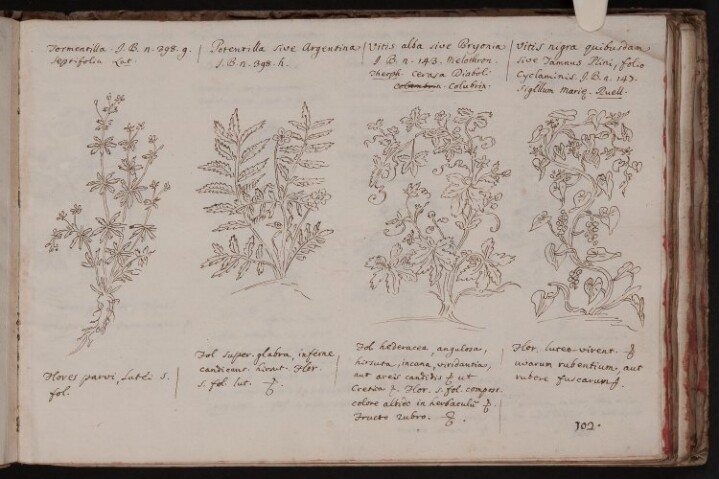 Tormentilla. J.B. n. 398. g.
Septifolia Lut.
Potentilla sive Argentina
J.B. n. 398. h.
Vitis alba sive Bryonia
J.B. n. 143. Melothron.
Theoph. Cerasa Diaboli
Colubrin.
Vitis nigra quibusdam
sive Tamnus Plini, folio
Cyclaminis. J.B. n. 147.
Sigillum Marię. Ruell.
Flores parvi, Lutei 5.
fol.
Fol super. glabra, inferne
candicent. hirsut. Flor.
5. fol lut.
Fol hederacea, angulosa,
hirsuta, incana, viridantia,
aut areis candidis ut
Cretica. Flor. 5. fol.
colore in
Fructo rubro.
Flor. lutee virent.
uvarum rubentium, aut
rubere fuscarum.
102.